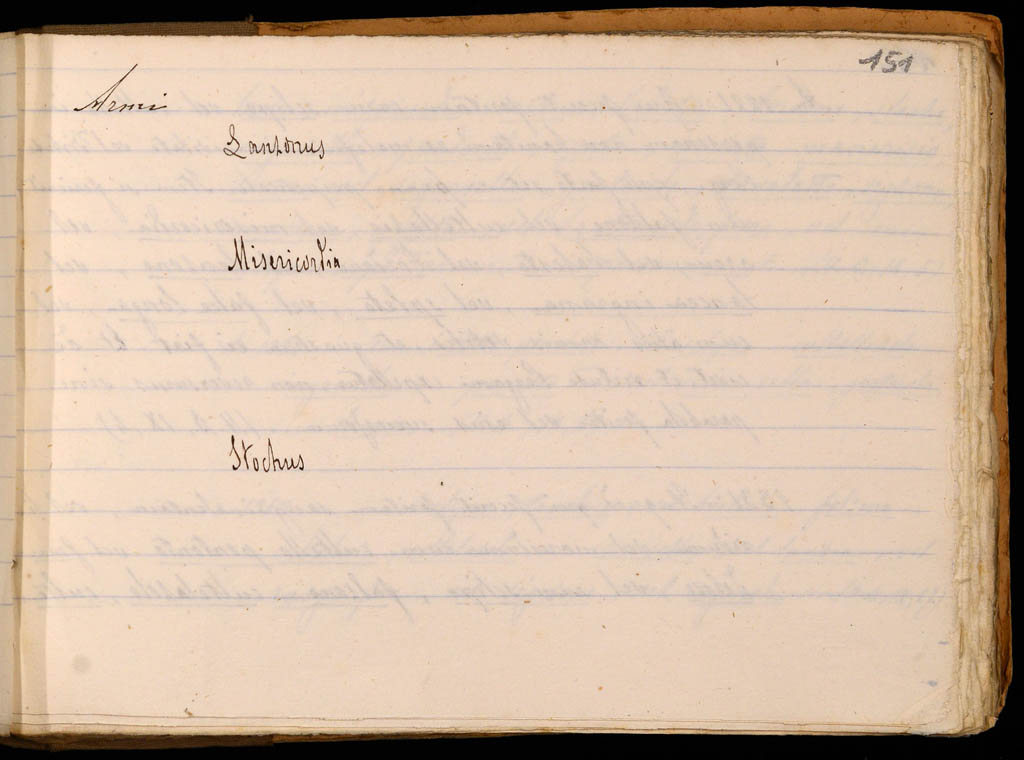 151
Armi
Lanzonus
Misericordia
Stochus